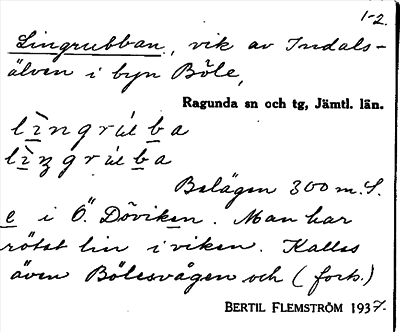 1-2.
Lingrubban, vik av Indals-
älven i byn Böle,
Ragunda sn och tg, Jämtl. län.
Belägen 300 m. S.
e i Ö. Döviken. Man har
rötat lin i viken. Kallas
även Bölesvågen och (forts.)
BERTIL FLEMSTRÖM 1937.